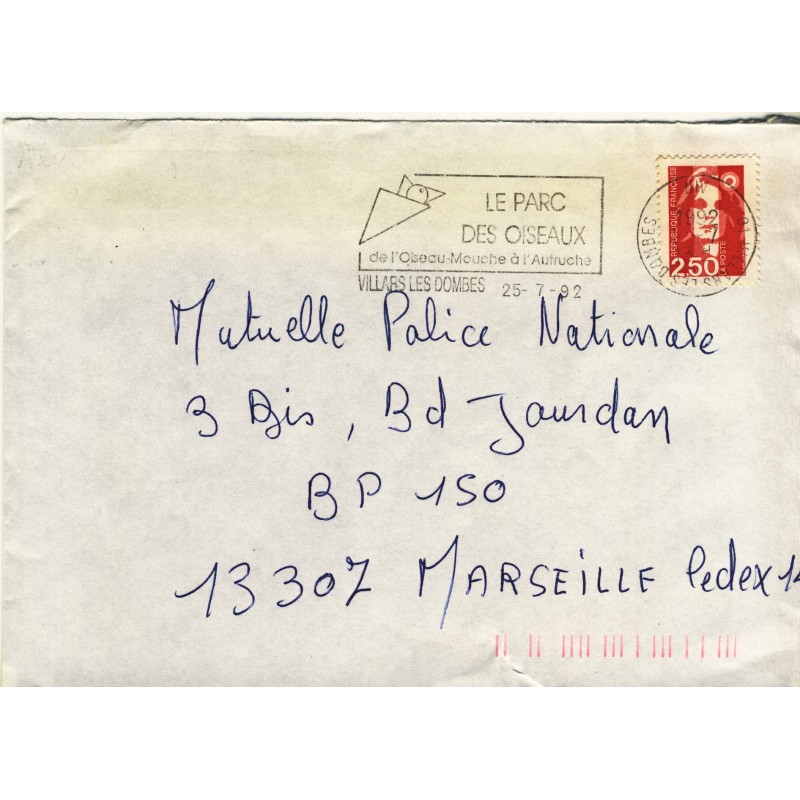 LE PARC
DES OISEAUX
de l'Oiseau-Mouche à l'Autruche
VILLARS LES DOMBES 25-7-92
REPUBLIQUE FRANÇAISE
LA POSTE
2,50
Mutuelle Police Nationale
3 Bis, Bd Jourdan
BP 150
13307 MARSEILLE Cedex 14